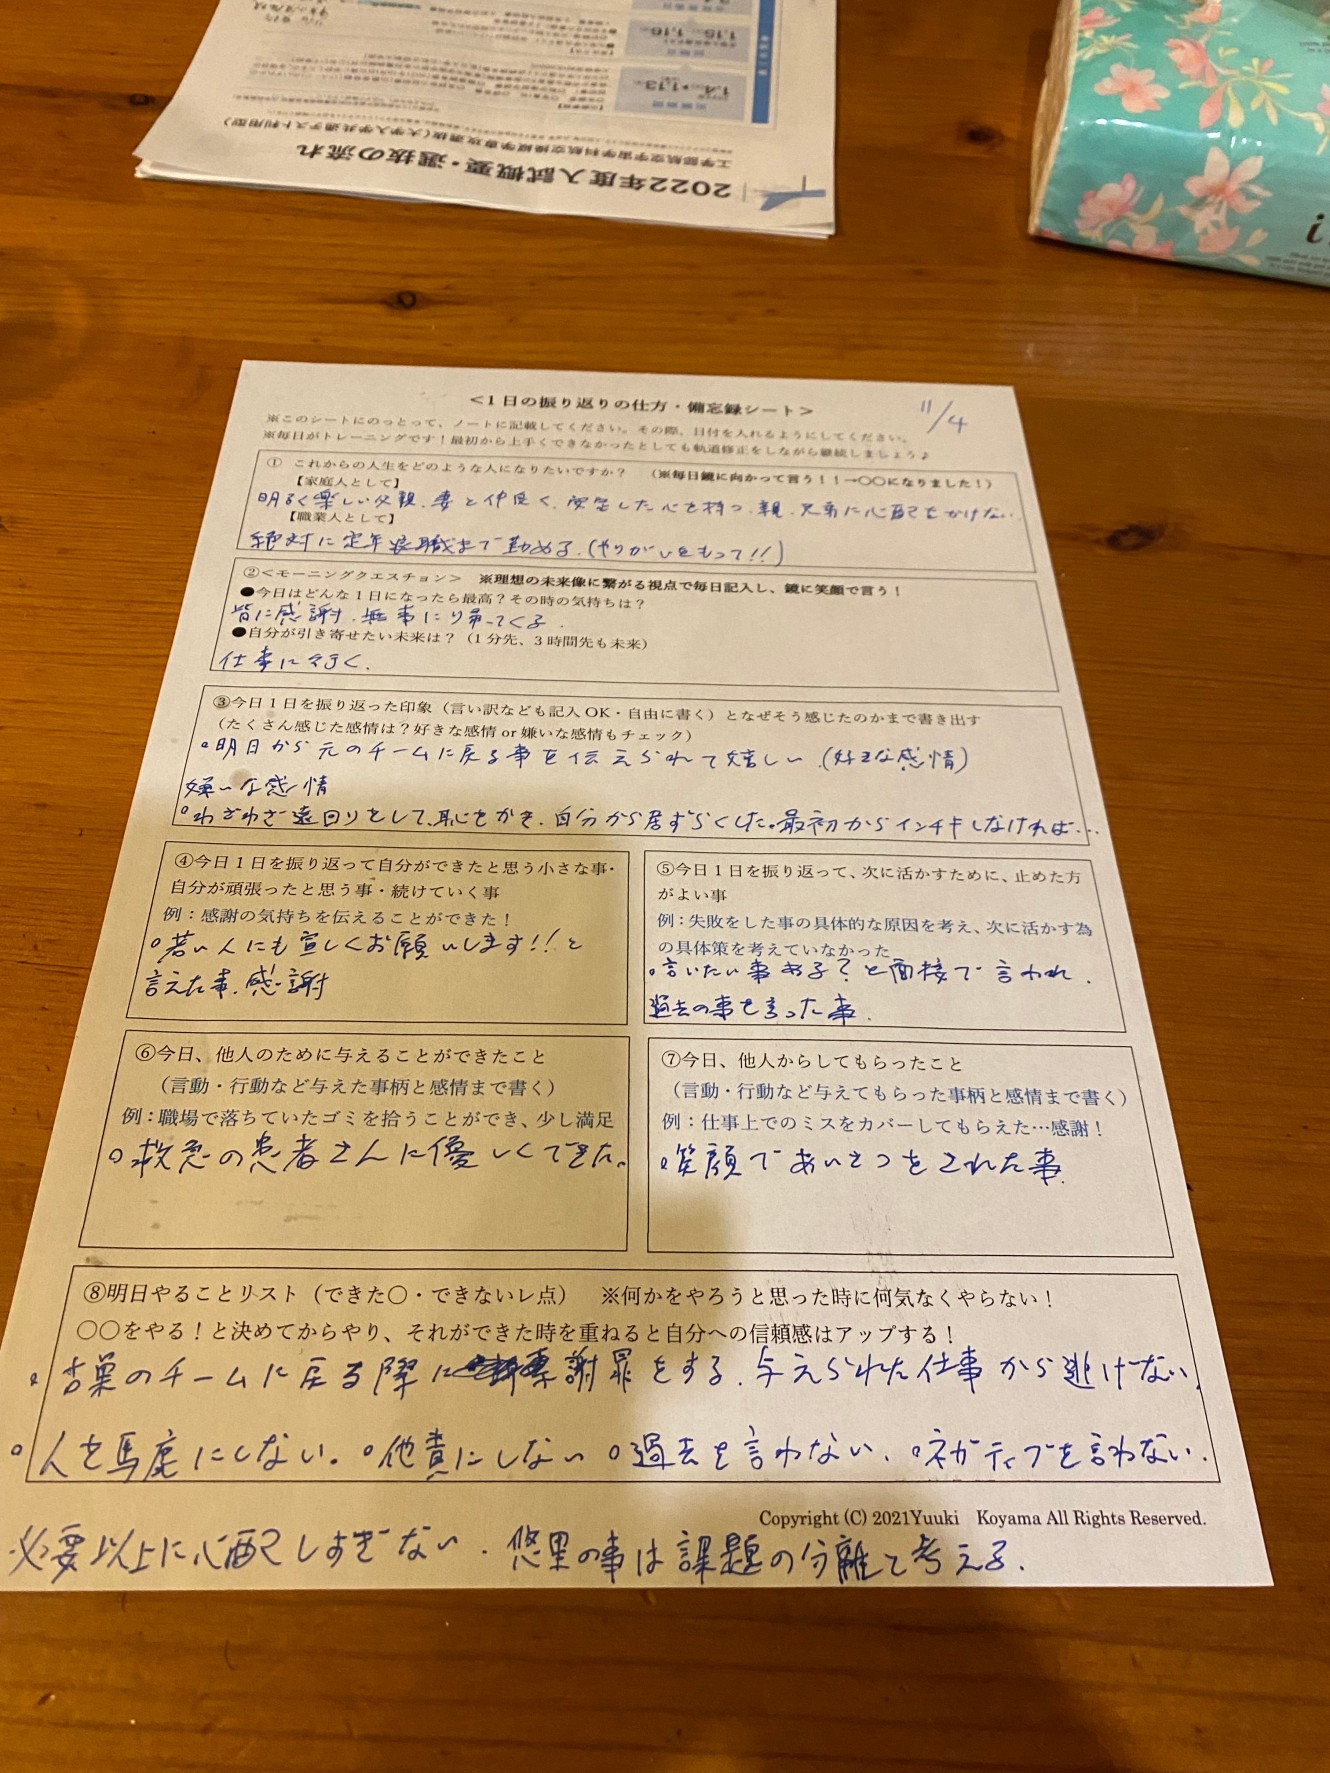 2022年度入試概要・選抜の流れ
工学部航空宇宙学科航空操縦学専攻選抜(大学入学共通テスト利用型)
1.4 1.13
1.15 1.16
<1日の振り返りの仕方・備忘録シート>
11/4
※このシートにのっとって、ノートに記載してください。その際、日付を入れるようにしてください。
※毎日がトレーニングです!最初から上手くできなかったとしても軌道修正をしながら継続しましょう♪
① これからの人生をどのような人になりたいですか? (※毎日鏡に向かって言う!!→○○になりました!)
【家庭人として】
明るく楽しい父親、妻と仲良く、安定した心を持つ、親、兄弟に心配をかけない。
【職業人として】
絶対に定年退職まで勤める。(やりがいをもって!!)
②<モーニングクエスチョン> ※理想の未来像に繋がる視点で毎日記入し、鏡に笑顔で言う!
●今日はどんな1日になったら最高?その時の気持ちは?
皆に感謝、無事にり帰ってくる。
●自分が引き寄せたい未来は?(1分先、3時間先も未来)
仕事に行く。
③今日1日を振り返った印象(言い訳なども記入OK・自由に書く)となぜそう感じたのかまで書き出す
(たくさん感じた感情は?好きな感情 or 嫌いな感情もチェック)
○明日から元のチームに戻る事を伝えられて嬉しい。(好きな感情)
嫌いな感情
○わざわざ遠回りをして、恥をかき、自分から居ずらくした。最初からインチキしなければ…
④今日1日を振り返って自分ができたと思う小さな事・
自分が頑張ったと思う事・続けていく事
例:感謝の気持ちを伝えることができた!
○若い人にも宜しくお願いします!!と
言えた事、感謝
⑤今日1日を振り返って、次に活かすために、止めた方
がよい事
例:失敗をした事の具体的な原因を考え、次に活かす為
の具体策を考えていなかった
○言いたい事ある?と面接で言われ、
過去の事を言った事。
⑥今日、他人のために与えることができたこと
(言動・行動など与えた事柄と感情まで書く)
例:職場で落ちていたゴミを拾うことができ、少し満足
○救急の患者さんに優しくできた。
⑦今日、他人からしてもらったこと
(言動・行動など与えてもらった事柄と感情まで書く)
例:仕事上でのミスをカバーしてもらえた…感謝!
○笑顔であいさつをされた事。
⑧明日やることリスト(できた○・できないレ点) ※何かをやろうと思った時に何気なくやらない!
○○をやる!と決めてからやり、それができた時を重ねると自分への信頼感はアップする!
○古巣のチームに戻る際に謝罪をする。与えられた仕事から逃げない。
○人を馬鹿にしない。○他責にしない ○過去を言わない。○ネガティブを言わない。
Copyright (C) 2021Yuuki Koyama All Rights Reserved.
必要以上に心配しすぎない。悠里の事は課題の分離で考える。